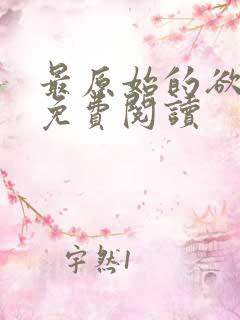 最原始的欲
免費閱讀
宇然1